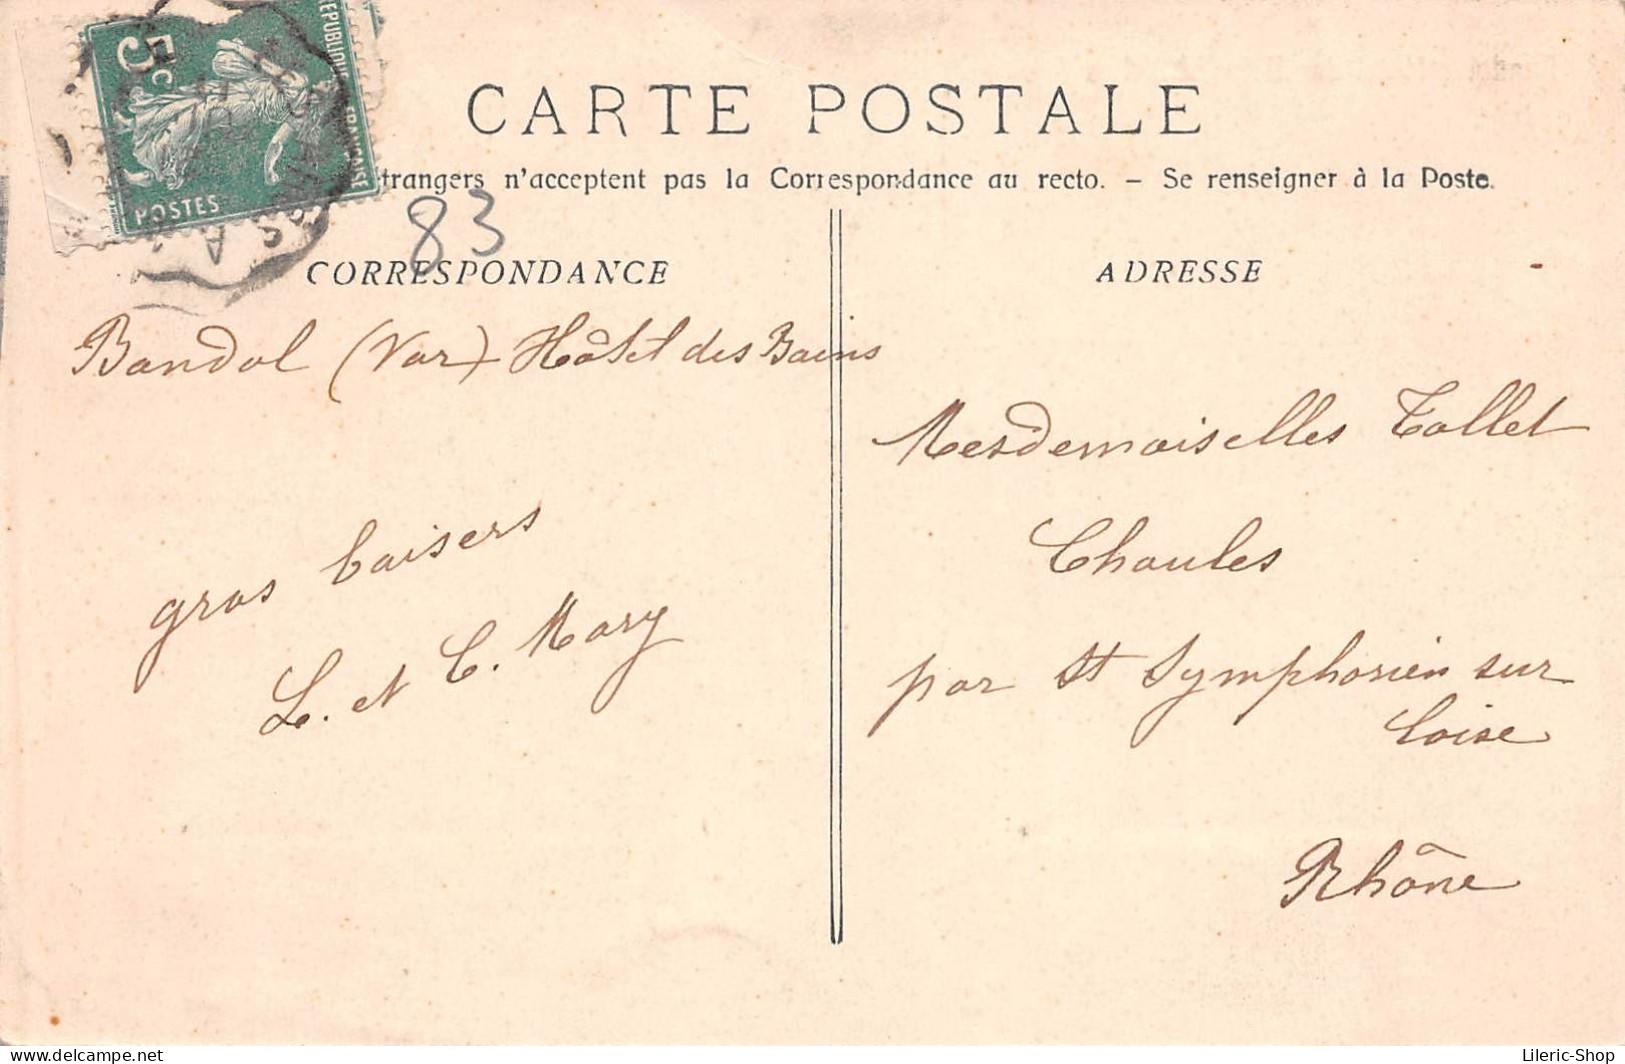 5c
RÉPUBLIQUE FRANÇAISE
POSTES
CARTE POSTALE
trangers n'acceptent pas la Correspondance au recto. – Se renseigner à la Poste.
83
CORRESPONDANCE
Bandol (Var) Hôtel des Bains
gros baisers
L. et C. Mary
ADRESSE
Mesdemoiselles Tollet
Chaules
par St Symphorien sur
Coise
Rhône
Lileric-Shop
delcampe.net